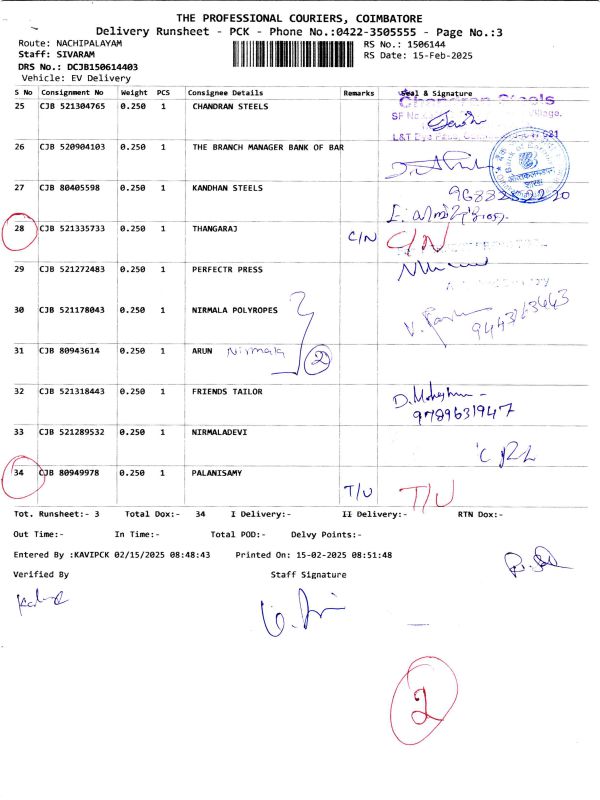 THE PROFESSIONAL COURIERS, COIMBATORE
Delivery Runsheet - PCK - Phone No.:0422-3505555 - Page No.:3
Route: NACHIPALAYAM RS No.: 1506144
Staff: SIVARAM RS Date: 15-Feb-2025
DRS No.: DCJB150614403
Vehicle: EV Delivery
S No Consignment No Weight PCS Consignee Details Remarks Seal & Signature
25 CJB 521304765 0.250 1 CHANDRAN STEELS
Chandran Steels
26 CJB 520904103 0.250 1 THE BRANCH MANAGER BANK OF BAR
27 CJB 80405598 0.250 1 KANDHAN STEELS
28 CJB 521335733 0.250 1 THANGARAJ C/N C/N
29 CJB 521272483 0.250 1 PERFECTR PRESS
30 CJB 521178043 0.250 1 NIRMALA POLYROPES
9443763643
31 CJB 80943614 0.250 1 ARUN Nirmala 2
32 CJB 521318443 0.250 1 FRIENDS TAILOR
9789631947
33 CJB 521289532 0.250 1 NIRMALADEVI
34 CJB 80949978 0.250 1 PALANISAMY T/U T/U
Tot. Runsheet:- 3 Total Dox:- 34 I Delivery:- II Delivery:- RTN Dox:-
Out Time:- In Time:- Total POD:- Delvy Points:-
Entered By :KAVIPCK 02/15/2025 08:48:43 Printed On: 15-02-2025 08:51:48
Verified By Staff Signature
2